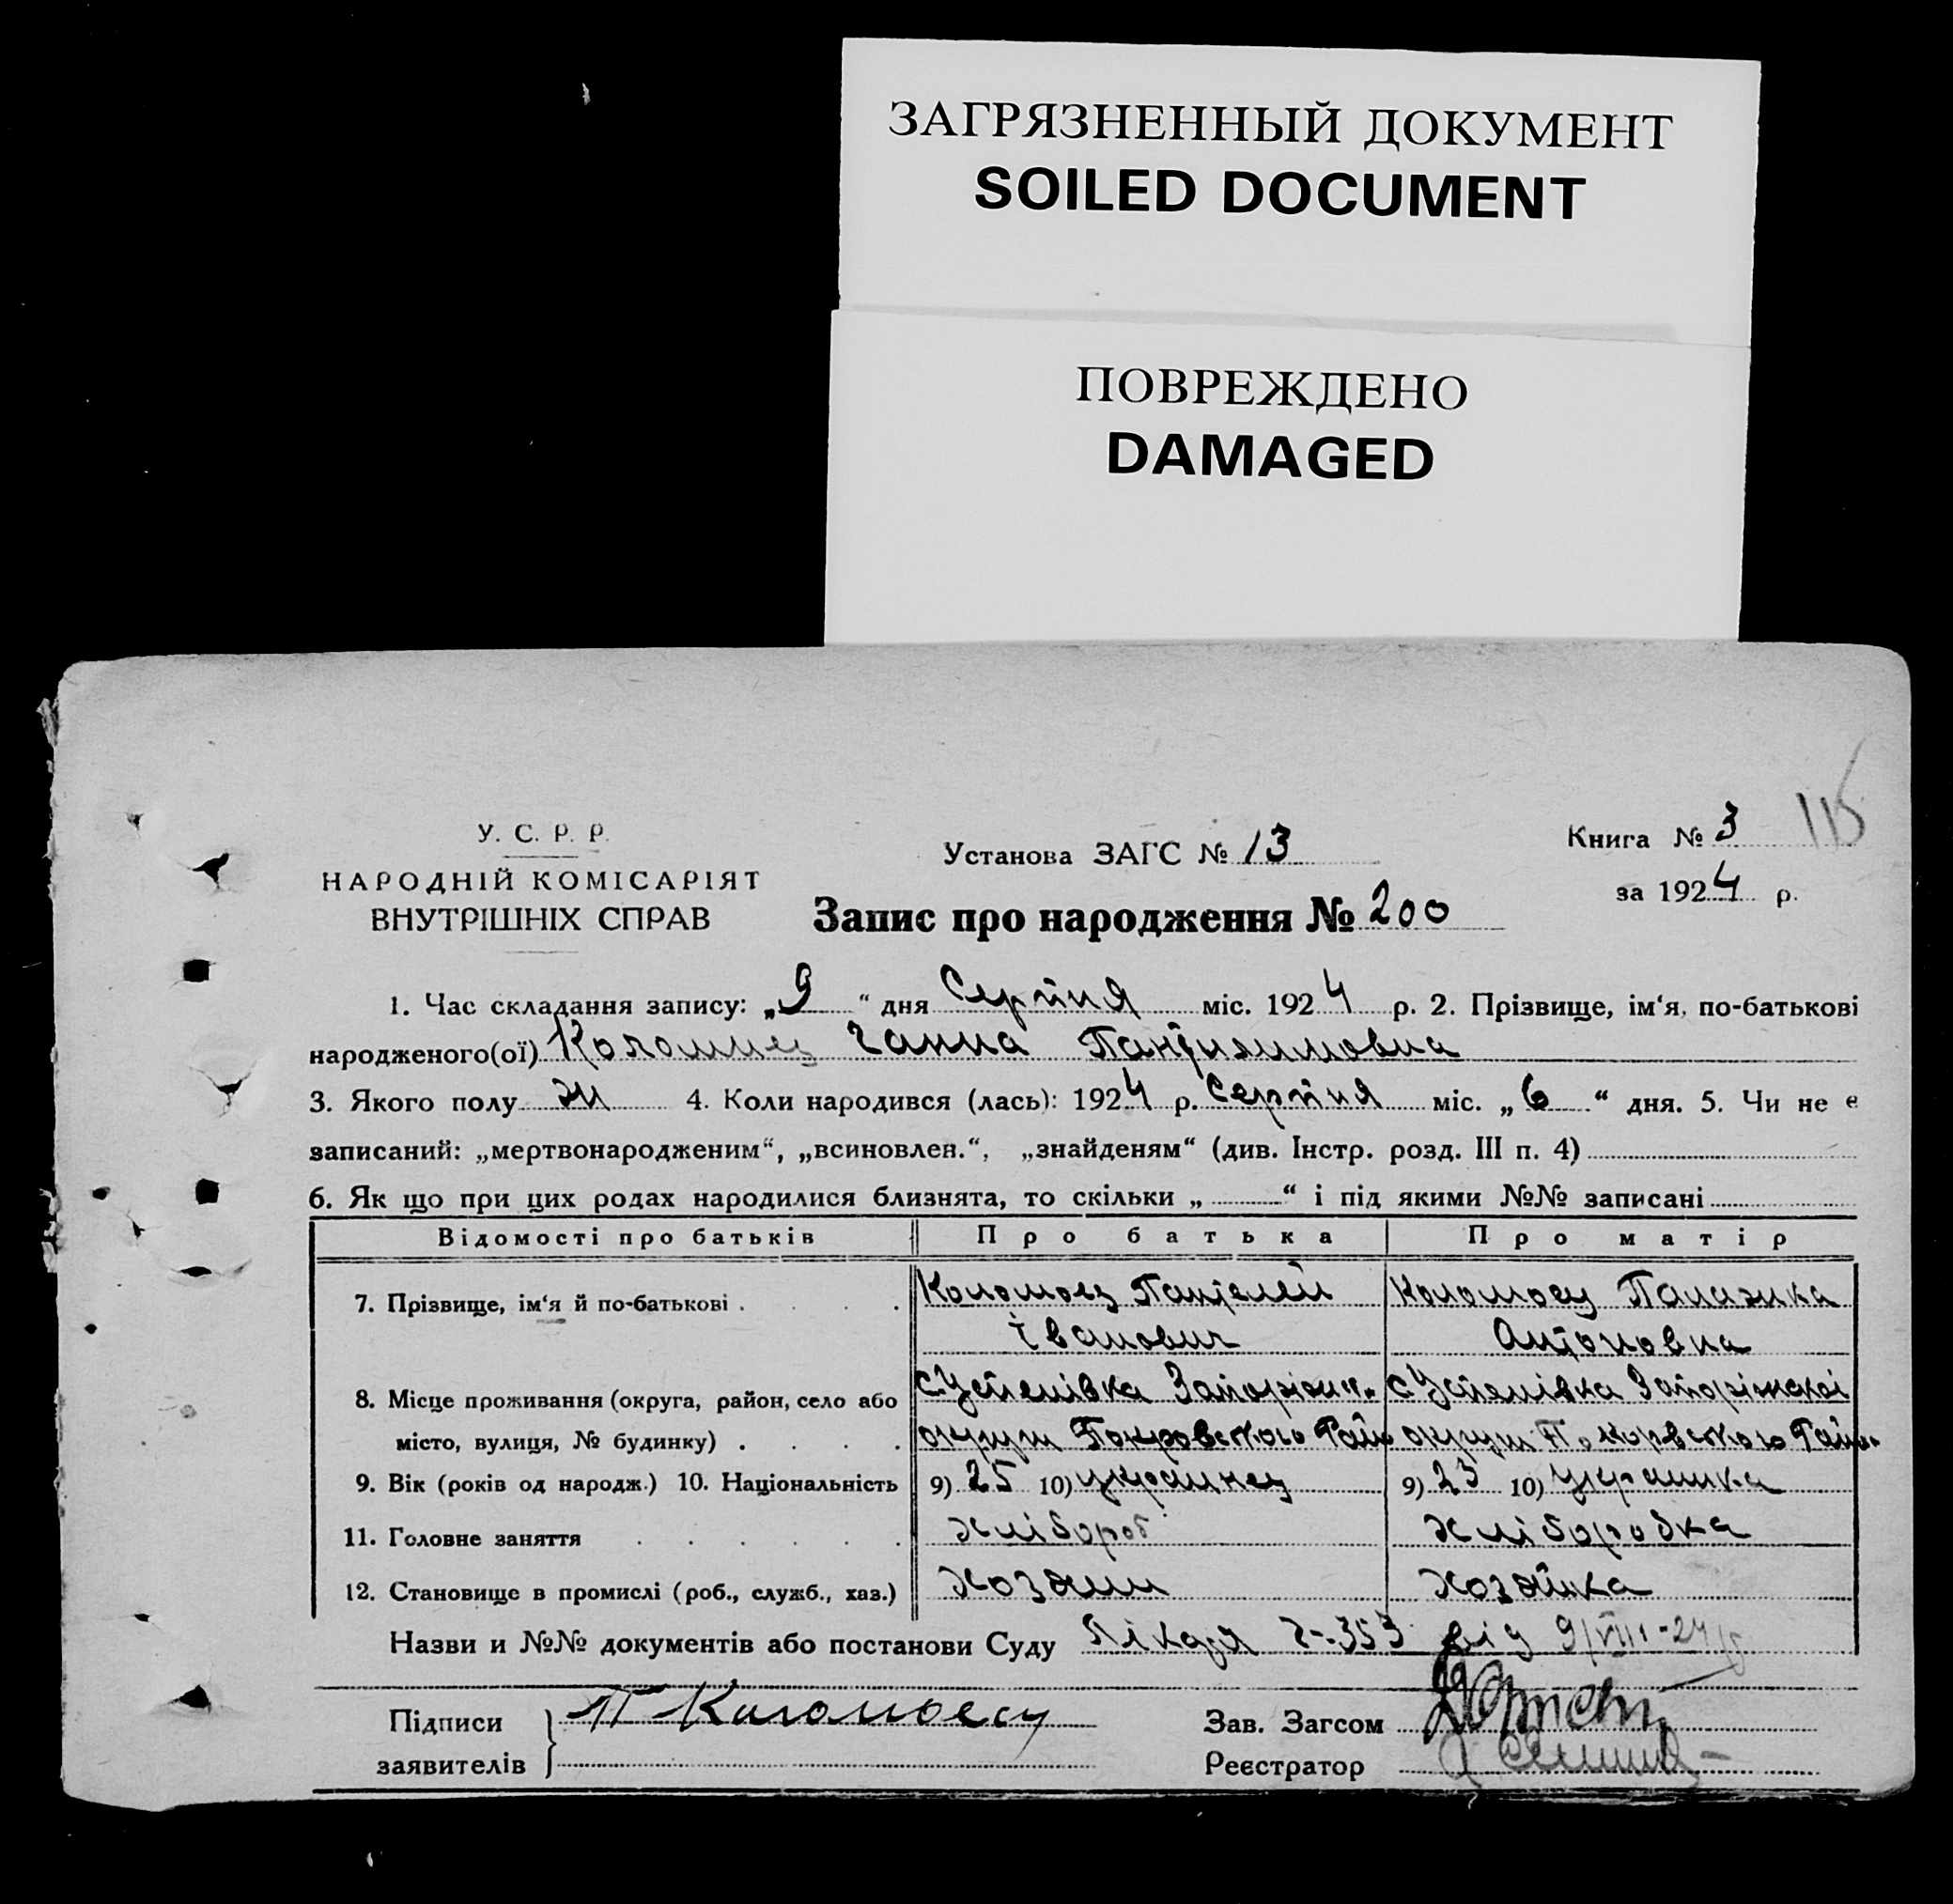 ЗАГРЯЗНЕННЫЙ ДОКУМЕНТ
SOILED DOCUMENT
ПОВРЕЖДЕНО
DAMAGED
115
У. С. Р. Р.
НАРОДНІЙ КОМІСАРІЯТ
ВНУТРІШНІХ СПРАВ
Установа ЗАГС № 13
Книга № 3
за 1924 р.
Запис про народження № 200
1. Час складання запису: „9“ дня Серпня міс. 1924 р. 2. Прізвище, ім‘я, по-батькові
народженого(ої) Коломиец Ганна
3. Якого полу ж 4. Коли народився (лась): 1924 р. Серпня міс. „6“ дня. 5. Чи не є
записаний: „мертвонародженим“, „всиновлен.“, „знайденям“ (див. Інстр. розд. III п. 4)
6. Як що при цих родах народилися близнята, то скільки „ “ і під якими №№ записані
Відомості про батьків Про батька Про матір
7. Прізвище, ім‘я й по-батькові Коломоец Пантелей Коломоец Палажка
Іванович Антоновна
8. Місце проживання (округа, район, село або с Успенівка с Успенівка Запоріжскоі
місто, вулиця, № будинку) округи Покровського Район округи Район
9. Вік (років од народж.) 10. Національність 9) 25 10) украинец 9) 23 10) Украинка
11. Головне заняття хлібороб хлібородка
12. Становище в промислі (роб., служб., хаз.) хозяин хозяйка
Назви и №№ документів або постанови Суду Лікаря 353 від 9/VIII-24
Підписи П Коломоец Зав. Загсом
заявителів Реєстратор